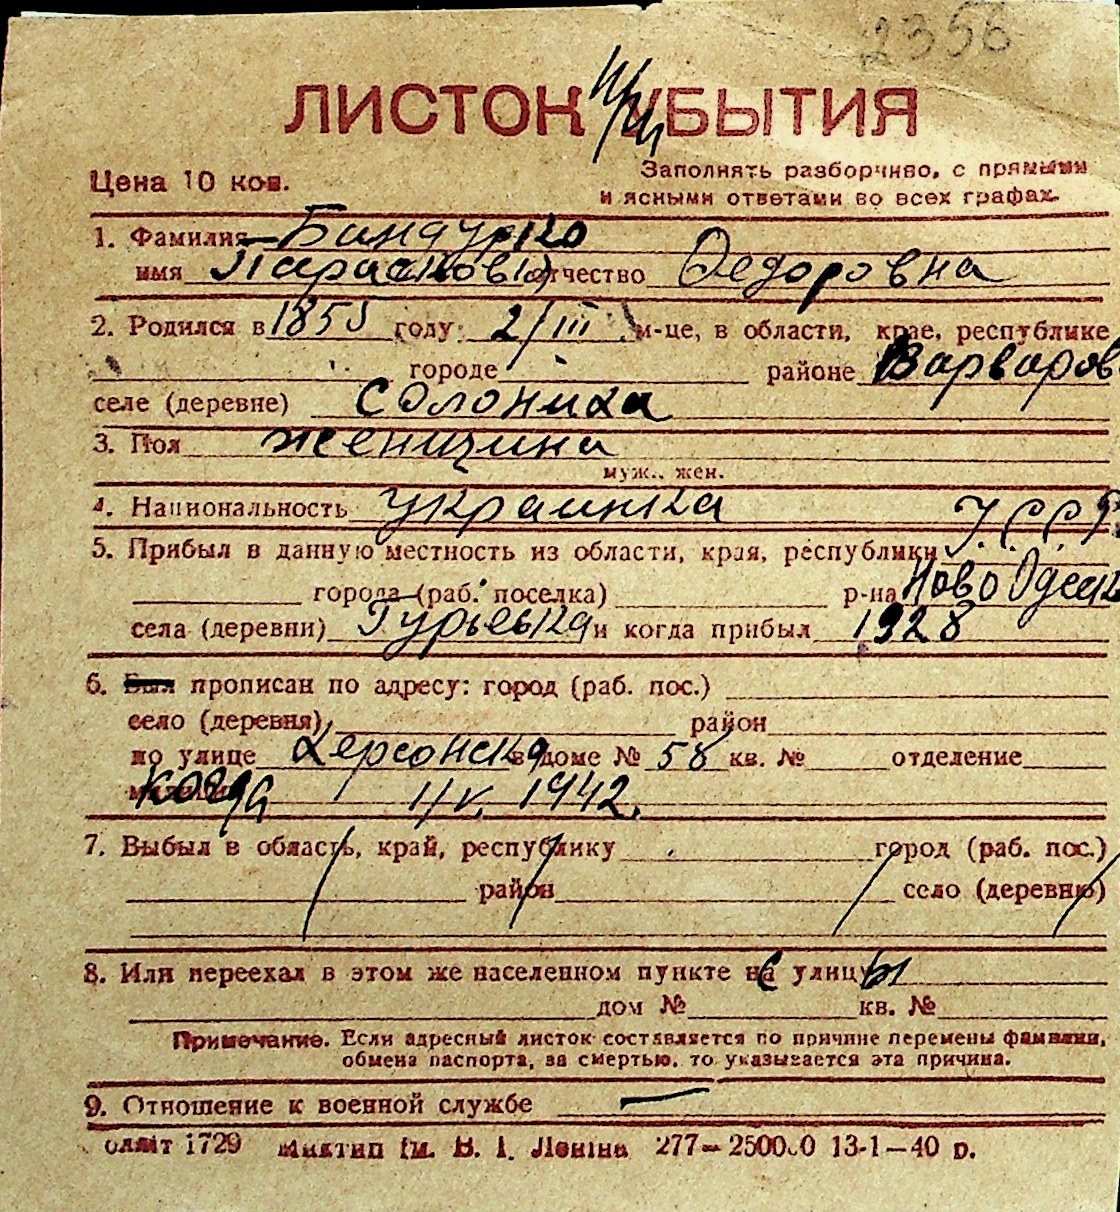 2356
ЛИСТОК УБЫТИЯ
Цена 10 коп.
Заполнять разборчиво, с прямыми
и ясными ответами во всех графах.
1. Фамилия Бандурко
имя Парасковья отчество Федоровна
2. Родился в 1855 году 2/III м-це, в области, крае, республике
городе районе Варваров
селе (деревне) Солониха
3. Пол женщина
муж., жен.
4. Национальность украинка
5. Прибыл в данную местность из области, края, республики У.С.С.Р.
города (раб. поселка) р-на Ново Одесск
села (деревни) Гурьевка и когда прибыл 1928
6. Был прописан по адресу: город (раб. пос.)
село (деревня) район
по улице Херсонская в доме № 58 кв. № отделение
милиции когда 1942.
7. Выбыл в область, край, республику город (раб. пос.)
район село (деревню)
8. Или переехал в этом же населенном пункте с улицы
дом № кв. №
Примечание. Если адресный листок составляется по причине перемены фамилии,
обмена паспорта, за смертью, то указывается эта причина.
9. Отношение к военной службе —
1729 ім. В. І. Леніна 277—25000.0 13-1—40 р.